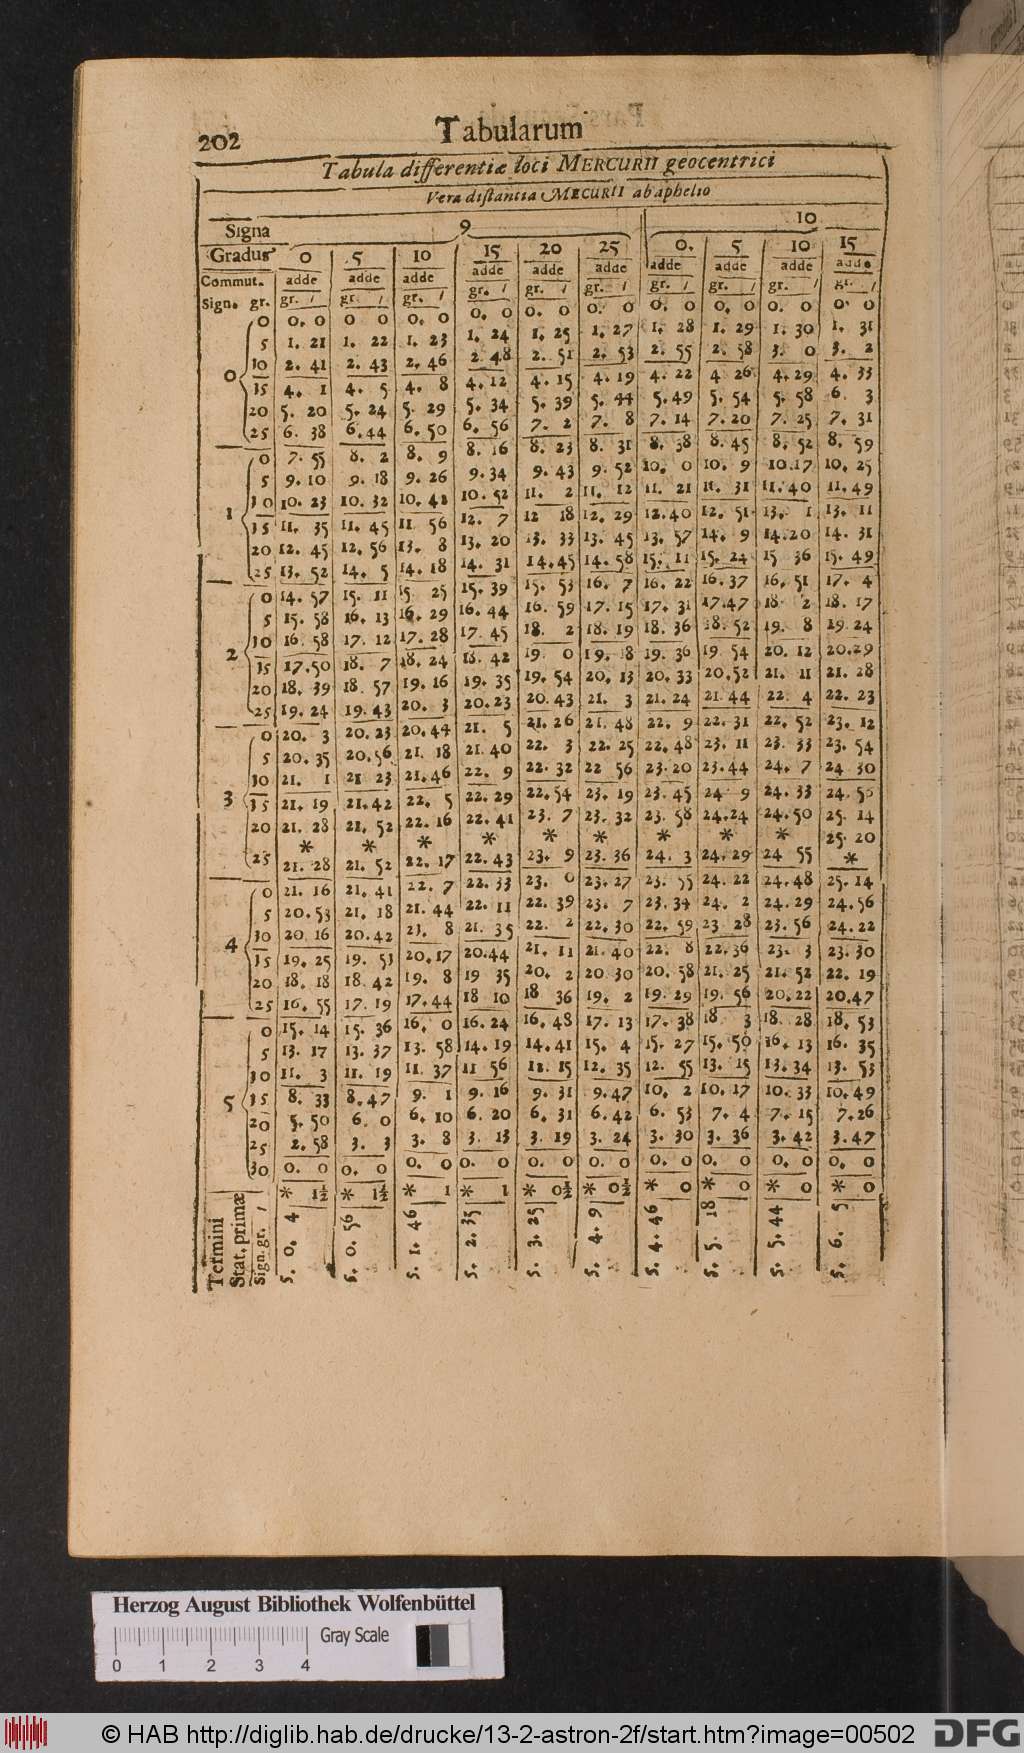 202 Tabularum
Tabula differentiæ loci MERCURII geocentrici
Vera distantia MECURII ab aphelio
Signa 9 10
Gradus 0 5 10 15 20 25 0. 5 10 15
Commut. adde adde adde adde adde adde adde adde adde adde
Sign. gr. gr. / gr. / gr. / gr. / gr. / gr. / gr. / gr. / gr. / gr. /
0 0 0. 0 0 0 0. 0 0. 0 0. 0 0. 0 0. 0 0. 0 0. 0 0. 0
5 1. 21 1. 22 1. 23 1. 24 1. 25 1. 27 1. 28 1. 29 1. 30 1. 31
10 2. 41 2. 43 2. 46 2 48 2. 51 2. 53 2. 55 2. 58 3. 0 3. 2
15 4. 1 4. 5 4. 8 4. 12 4. 15 4. 19 4. 22 4 26 4. 29 4. 33
20 5. 20 5. 24 5. 29 5. 34 5. 39 5. 44 5. 49 5. 54 5. 58 6. 3
25 6. 38 6. 44 6. 50 6. 56 7. 2 7. 8 7. 14 7. 20 7. 25 7. 31
1 0 7. 55 8. 2 8. 9 8. 16 8. 23 8. 31 8. 38 8. 45 8. 52 8. 59
5 9. 10 9. 18 9. 26 9. 34 9. 43 9. 52 10. 0 10. 9 10. 17 10. 25
10 10. 23 10. 32 10. 42 10. 52 11. 2 11. 12 11. 21 11. 31 11. 40 11. 49
15 11. 35 11. 45 11 56 12. 7 12 18 12. 29 12. 40 12. 51 13. 1 13. 11
20 12. 45 12. 56 13. 8 13. 20 13. 33 13. 45 13. 57 14. 9 14. 20 14. 31
25 13. 52 14. 5 14. 18 14. 31 14. 45 14. 58 15. 11 15. 24 15 36 15. 49
2 0 14. 57 15. 11 15 25 15. 39 15. 53 16. 7 16. 22 16. 37 16. 51 17. 4
5 15. 58 16. 13 16. 29 16. 44 16. 59 17. 15 17. 31 17. 47 18. 2 18. 17
10 16. 58 17. 12 17. 28 17. 45 18. 2 18. 19 18. 36 18. 52 19. 8 19. 24
15 17. 50 18. 7 18. 24 18. 42 19. 0 19. 18 19. 36 19 54 20. 12 20. 29
20 18. 39 18. 57 19. 16 19. 35 19. 54 20. 13 20. 33 20. 52 21. 11 21. 28
25 19. 24 19. 43 20. 3 20. 23 20. 43 21. 3 21. 24 21. 44 22. 4 22. 23
3 0 20. 3 20. 23 20. 44 21. 5 21. 26 21. 48 22. 9 22. 31 22. 52 23. 12
5 20. 35 20. 56 21. 18 21. 40 22. 3 22. 25 22. 48 23. 11 23. 33 23. 54
10 21. 1 21 23 21. 46 22. 9 22. 32 22 56 23. 20 23. 44 24. 7 24 30
15 21. 19 21. 42 22. 5 22. 29 22. 54 23. 19 23. 45 24 9 24. 33 24.
20 21. 28 21. 52 22. 16 22. 41 23. 7 23. 32 23. 58 24. 24 24. 50 25. 14
* * * * * * * * * 25. 20
25 21. 28 21. 52 22. 17 22. 43 23. 9 23. 36 24. 3 24. 29 24 55 *
4 0 21. 16 21. 41 22. 7 22. 33 23. 0 23. 27 23. 55 24. 22 24. 48 25. 14
5 20. 53 21. 18 21. 44 22. 11 22. 39 23. 7 23. 34 24. 2 24. 29 24. 56
10 20. 16 20. 42 21. 8 21. 35 22. 2 22. 30 22. 59 23 28 23. 56 24. 22
15 19. 25 19. 51 20. 17 20. 44 21. 11 21. 40 22. 8 22. 36 23. 3 23. 30
20 18. 18 18. 42 19. 8 19 35 20. 2 20 30 20. 58 21. 25 21. 52 22. 19
25 16. 55 17. 19 17. 44 18 10 18 36 19. 2 19. 29 19. 56 20. 22 20. 47
5 0 15. 14 15. 36 16. 0 16. 24 16. 48 17. 13 17. 38 18. 3 18. 28 18. 53
5 13. 17 13. 37 13. 58 14. 19 14. 41 15. 4 15. 27 15. 50 16. 13 16. 35
10 11. 3 11. 19 11. 37 11 56 12. 15 12. 35 12. 55 13. 15 13. 34 13. 53
15 8. 33 8. 47 9. 1 9. 16 9. 31 9. 47 10. 2 10. 17 10. 33 10. 49
20 5. 50 6. 0 6. 10 6. 20 6. 31 6. 42 6. 53 7. 4 7. 15 7. 26
25 2. 58 3. 3 3. 8 3. 13 3. 19 3. 24 3. 30 3. 36 3. 42 3. 47
30 0. 0 0. 0 0. 0 0. 0 0. 0 0. 0 0. 0 0. 0 0. 0 0. 0
* 1½ * 1½ * 1 * 1 * 0½ * 0½ * 0 * 0 * 0 * 0
Termini
Stat. primæ
Sign. gr. /
5. 0. 4 5. 0. 56 5. 1. 46 5. 2. 35 5. 3. 25 5. 4. 9 5. 4. 46 5. 5. 18 5. 5. 44 5. 6. 5
Herzog August Bibliothek Wolfenbüttel
Gray Scale
0 1 2 3 4
© HAB http://diglib.hab.de/drucke/13-2-astron-2f/start.htm?image=00502
DFG